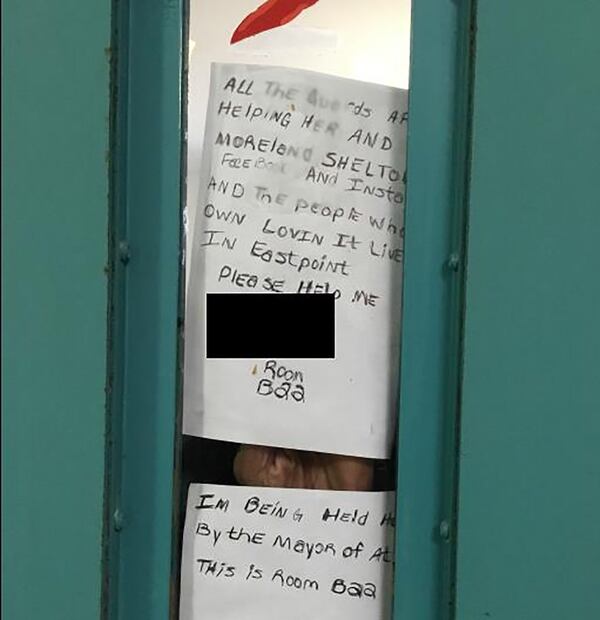 ALL The Guards AR
HELPING HER AND
MORELAND SHELTO
FACEBOOK AND INSTA
AND The people who
OWN LOVIN It LIVE
IN Eastpoint
PLEASE HELP ME
Room
B22
IM BEING Held H
By the Mayor of At
THIS is Room B22